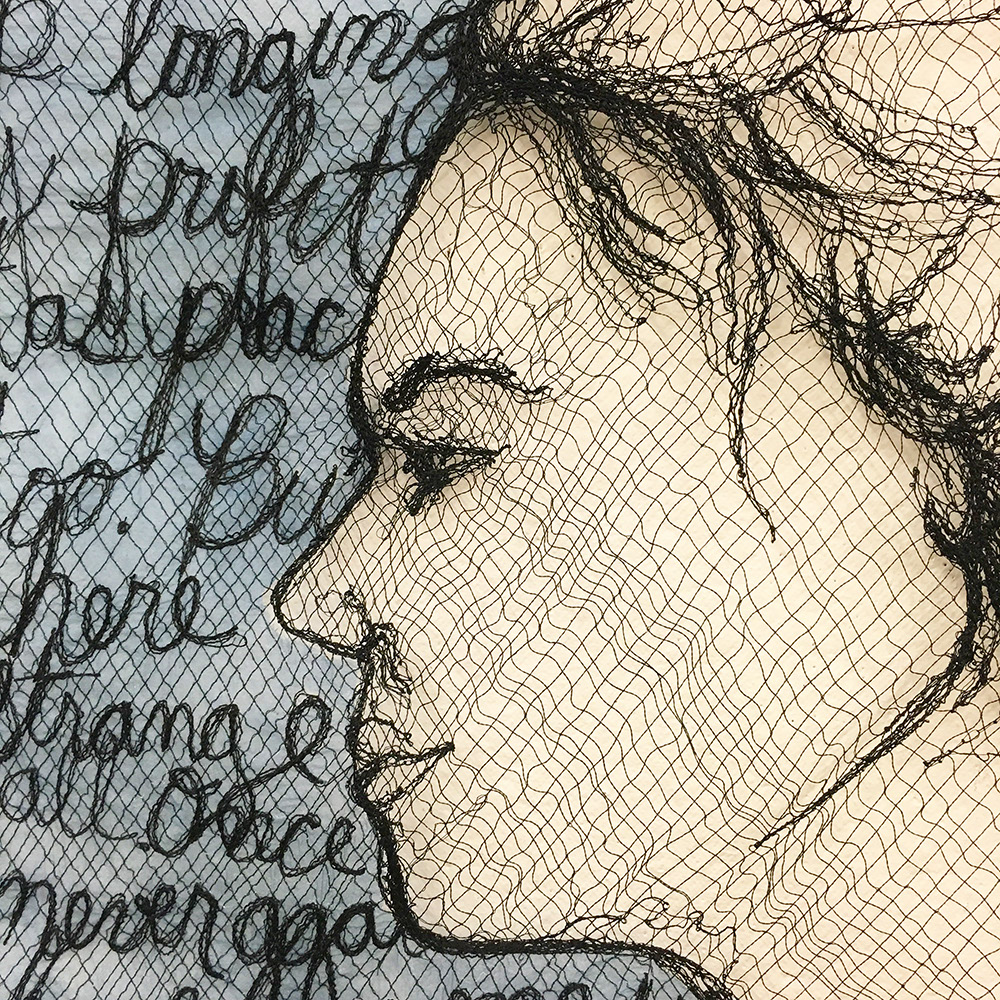 longing
profit
plac
go. Bu
here
strange
all Once
never aga